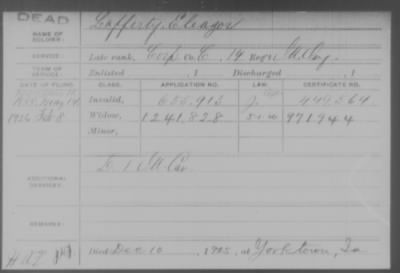 DEAD
NAME OF SOLDIER:
Lafferty, Eleazor
SERVICE:
Late rank, Corp Co. E, 14 Reg't Cav
TERM OF SERVICE:
Enlisted , 1 Discharged , 1
DATE OF FILING. CLASS. APPLICATION NO. LAW. CERTIFICATE NO.
Invalid, 656,913 449,564
1926 Feb 8 Widow, 1241,828 971944
Minor,
ADDITIONAL SERVICES:
Cav
REMARKS:
Died Dec 10, 1925, at Yorktown, Ia